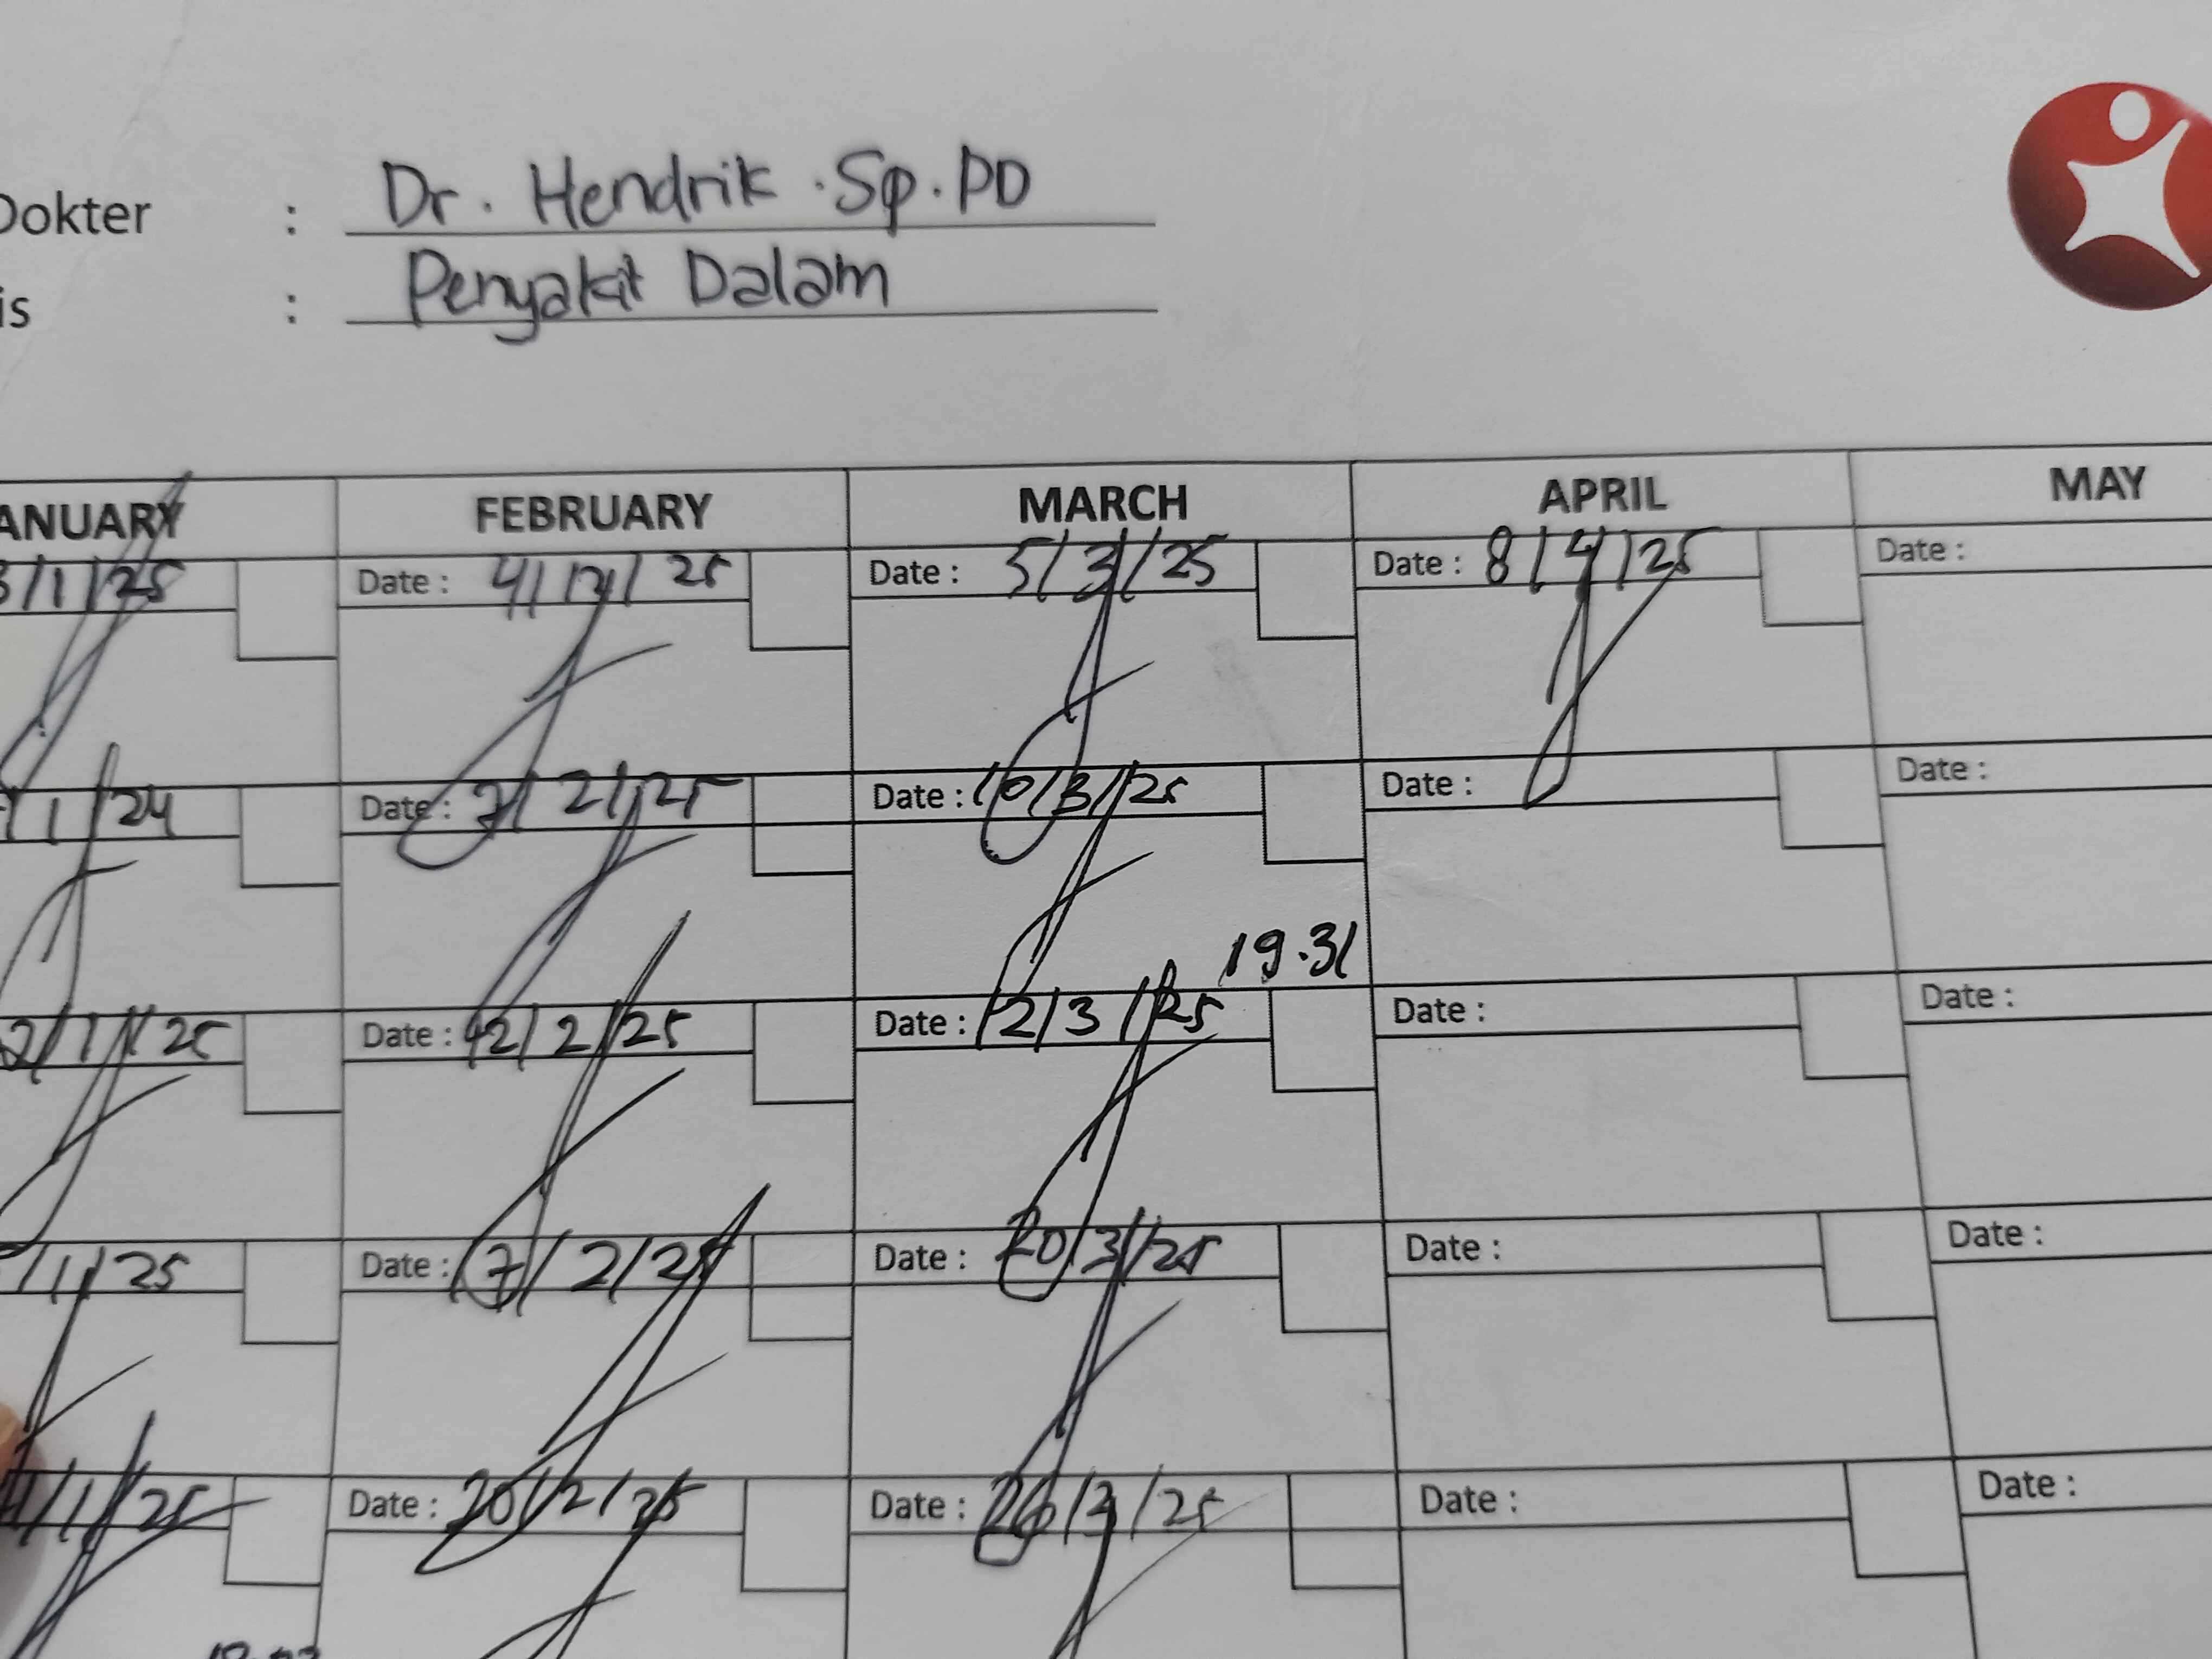 Dokter : Dr. Hendrik . Sp. PD
is : Penyakit Dalam
ANUARY FEBRUARY MARCH APRIL MAY
3/1/25 Date : 4/2/25 Date : 5/3/25 Date : 8/4/25 Date :
/1/24 Date : 7/2/25 Date : 10/3/25 Date : Date :
19.31
2/1/25 Date : 12/2/25 Date : 12/3/25 Date : Date :
/1/25 Date : 17/2/25 Date : 20/3/25 Date : Date :
/1/25 Date : 20/2/25 Date : 26/3/25 Date : Date :